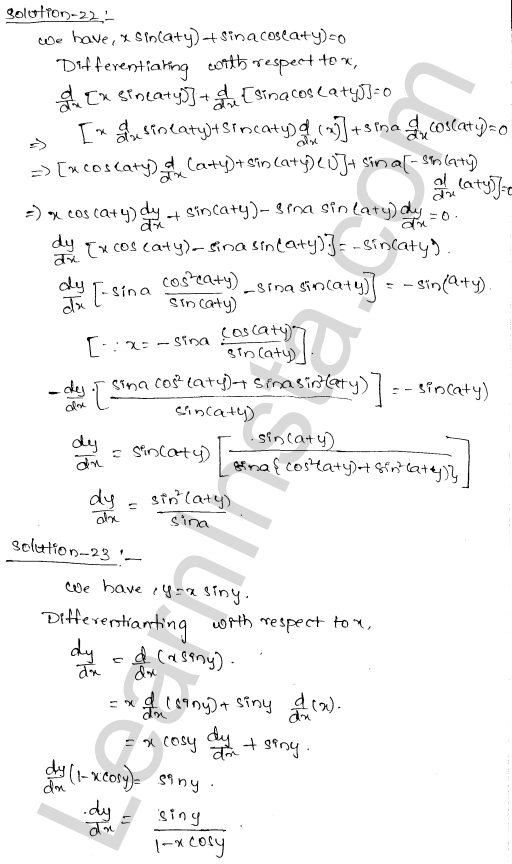 Solution-22:-
We have, x sin(a+y)+sina cos(a+y)=0
Differentiating with respect to x,
d/dx [x sin(a+y)] + d/dx [sina cos(a+y)]=0
⇒ [x d/dx sin(a+y)+sin(a+y) d/dx (x)]+sina d/dx cos(a+y)=0
⇒ [x cos(a+y) d/dx (a+y)+sin(a+y)(1)]+sina[-sin(a+y)
d/dx (a+y)]=0
⇒ x cos(a+y) dy/dx + sin(a+y) - sina sin(a+y) dy/dx = 0.
dy/dx [x cos(a+y) - sina sin(a+y)] = -sin(a+y).
dy/dx [-sina cos²(a+y)/sin(a+y) - sina sin(a+y)] = -sin(a+y).
[∵ x = -sina cos(a+y)/sin(a+y)].
-dy/dx [sina cos²(a+y)+sina sin²(a+y)/sin(a+y)] = -sin(a+y)
dy/dx = sin(a+y) [sin(a+y)/sina{cos²(a+y)+sin²(a+y)}]
dy/dx = sin²(a+y)/sina
Solution-23:-
We have, y=x siny.
Differentianting with respect to x,
dy/dx = d/dx (x siny).
= x d/dx (siny)+ siny d/dx (x).
= x cosy dy/dx + siny.
dy/dx (1-x cosy)= siny.
dy/dx = siny/1-x cosy
LearnInsta.com